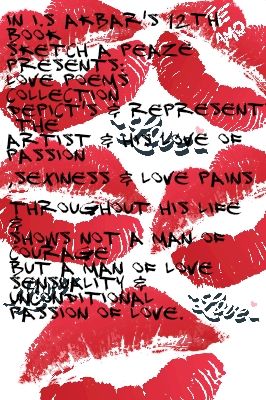 IN I.S AKBAR'S 12TH
BOOK
SKETCH A PEAZE
PRESENTS:
LOVE POEMS
COLLECTION
DEPICT'S & REPRESENT
THE
ARTIST & HIS LOVE OF
PASSION
,SEXINESS & LOVE PAINS
THROUGHOUT HIS LIFE
&
SHOWS NOT A MAN OF
COURAGE
BUT A MAN OF LOVE
SENSUALITY &
UNCONDITIONAL
PASSION OF LOVE.
Love
TE AMO